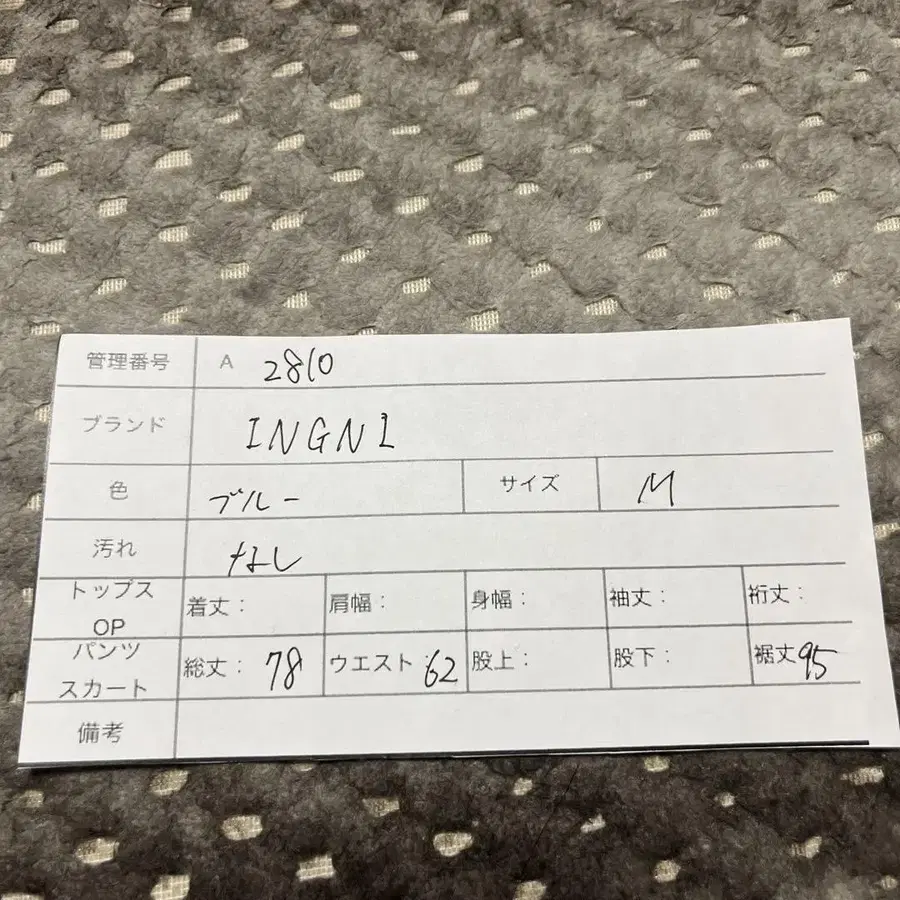 管理番号 A 2810
ブランド INGNI
色 ブルー サイズ M
汚れ なし
トップス OP 着丈： 肩幅： 身幅： 袖丈： 裄丈：
パンツ スカート 総丈： 78 ウエスト： 62 股上： 股下： 裾丈 95
備考